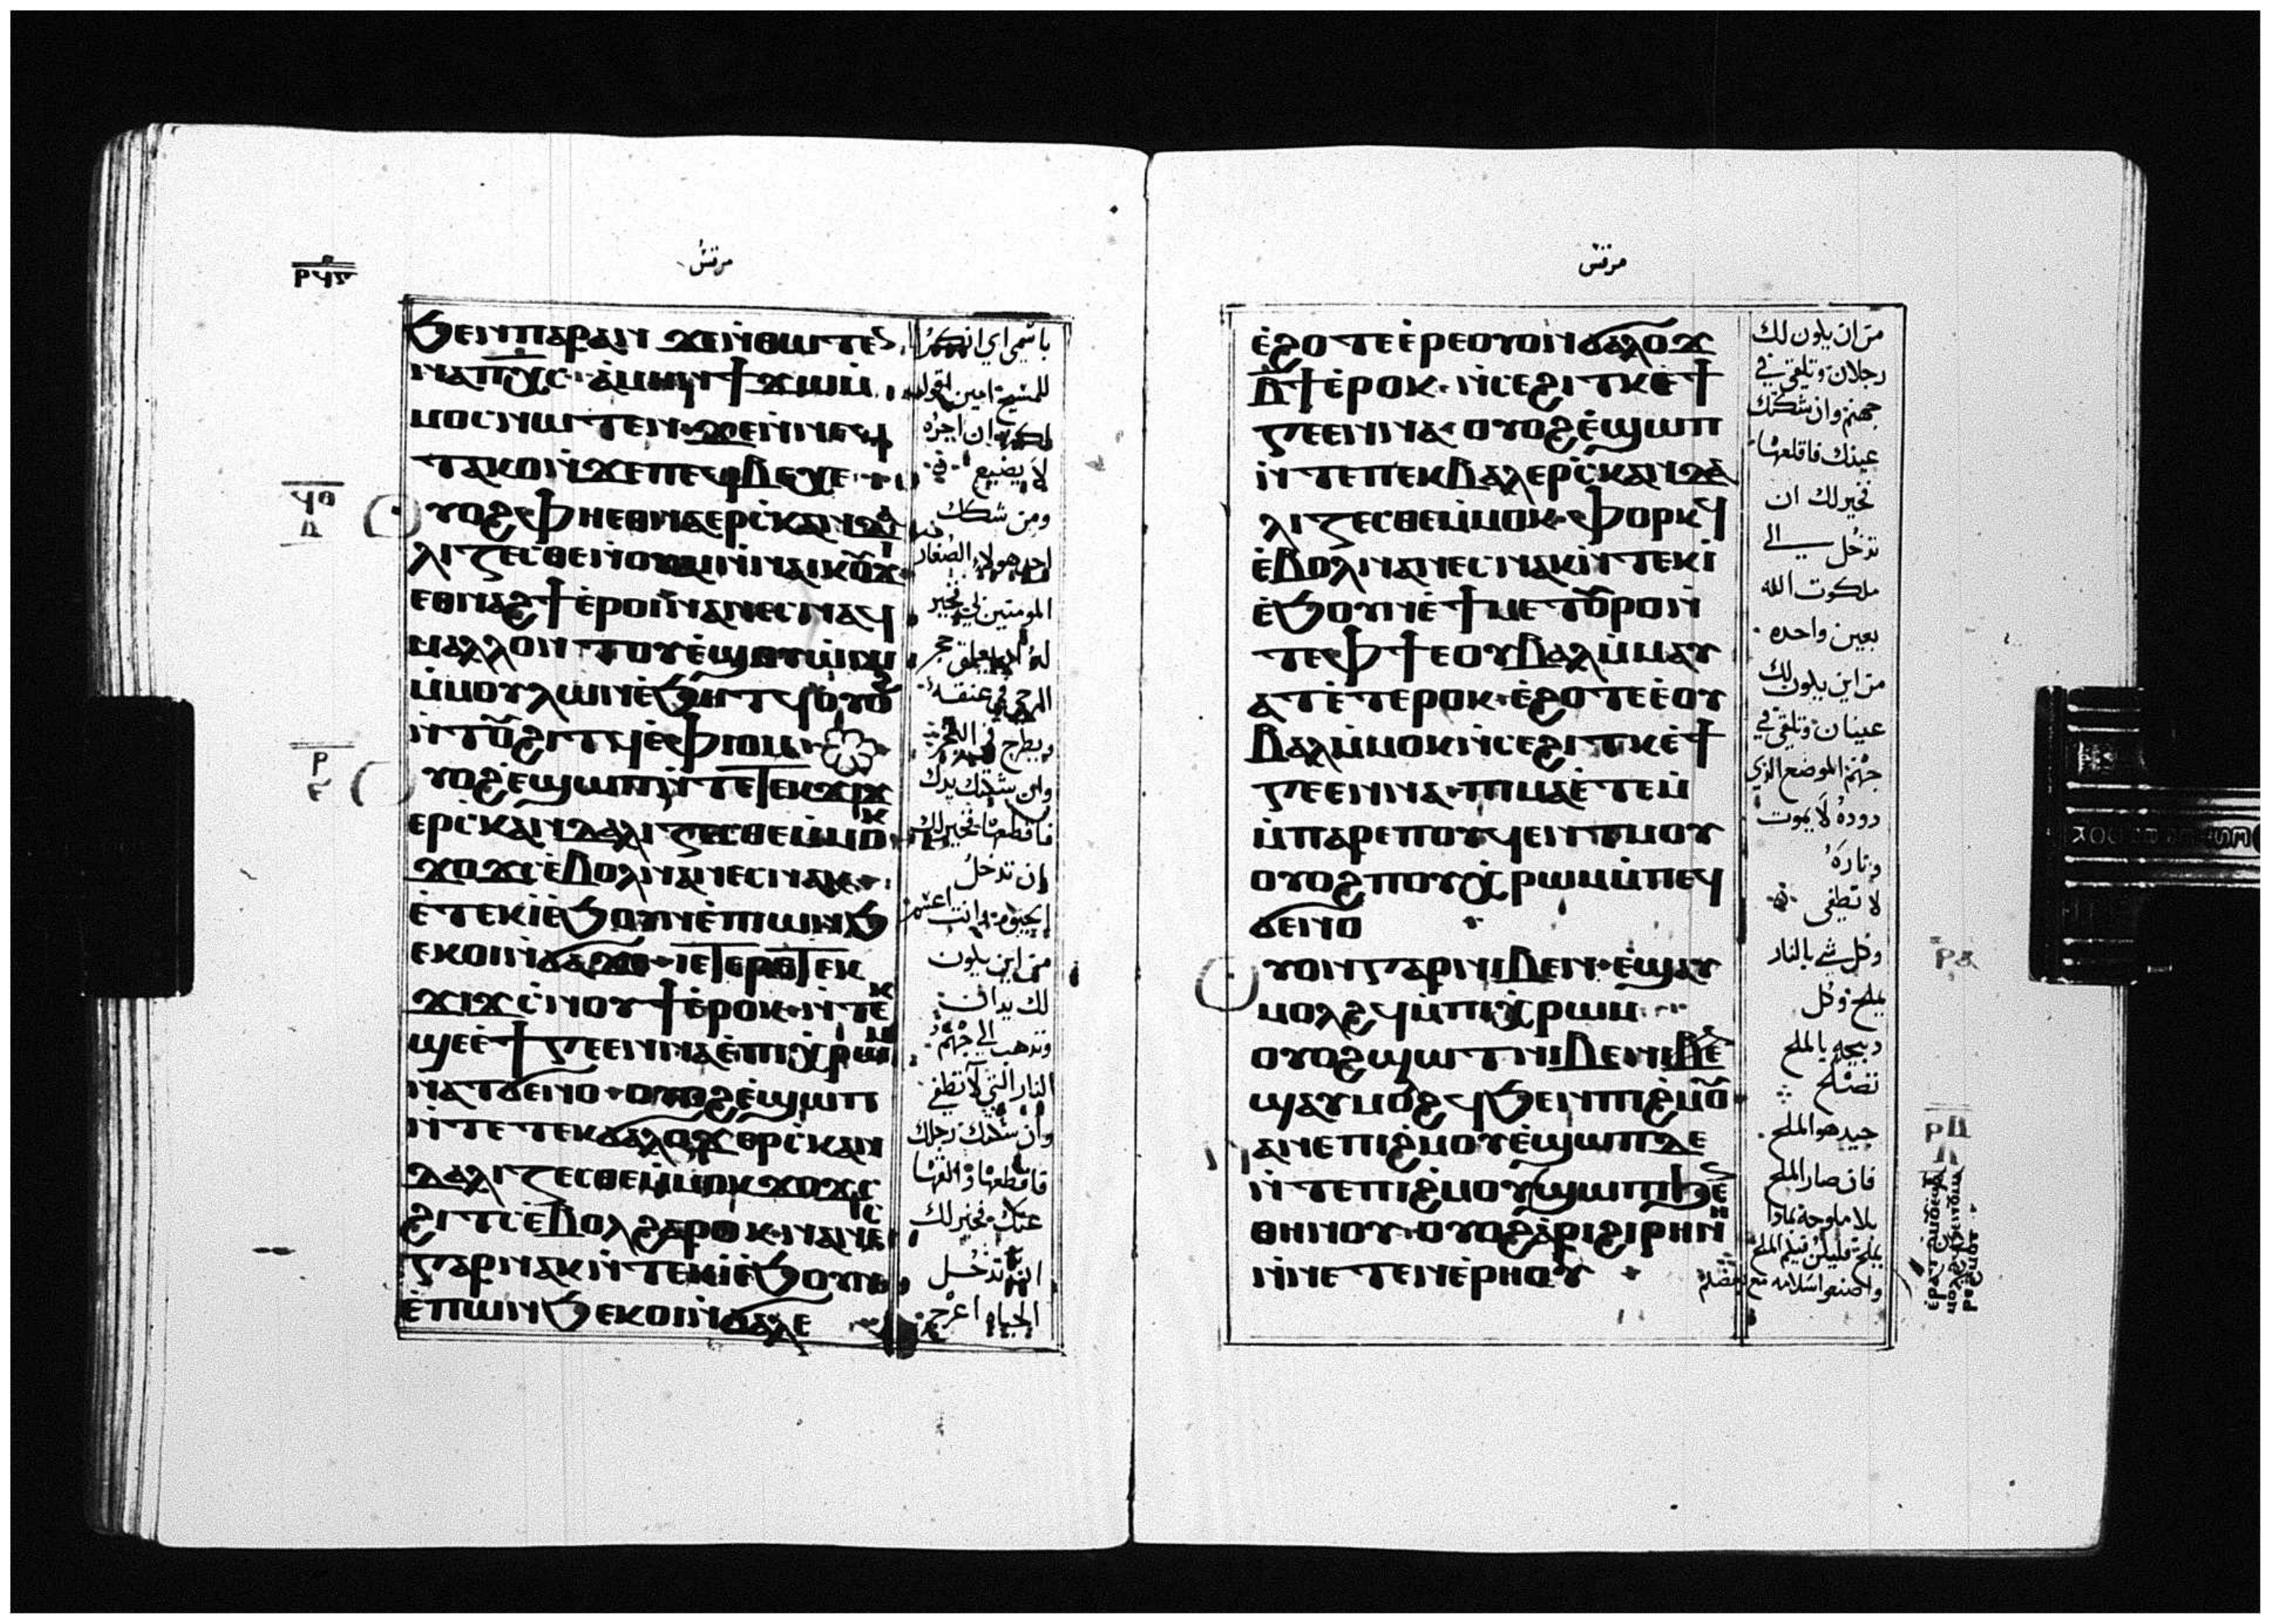 مرقس
ϧⲉⲛⲡⲁⲣⲁⲛ ϫⲉⲛ̀ⲑⲱⲧⲉⲛ
ⲛⲁⲡⲭ̅ⲥ̅· ⲁ̀ⲙⲏⲛ ϯϫⲱⲙ̀
ⲙⲟⲥⲛⲱⲧⲉⲛ· ϫⲉⲛ̀ⲛⲉϥ
ⲧⲁⲕⲟⲛ̀ϫⲉⲡⲉϥⲃⲉⲭⲉ
ⲩⲟϩ ⲫⲏⲉⲑⲛⲁⲉⲣⲥ̀ⲕⲁⲛⲇⲁ
ⲗⲓⲍⲉⲥⲑⲉⲛ̀ⲟⲩⲁⲓⲛ̀ⲛⲁⲓⲕⲟⲩϫⲓ
ⲉⲑⲛⲁϩϯⲉ̀ⲣⲟⲓⲛⲁⲛⲉⲥⲛⲁϥ
ⲙⲁⲗⲗⲟⲛ
ⲙ̀ⲙⲟⲩⲗⲱⲛⲉ̀ϧⲏⲧϥ ⲟⲩⲟϩ
ⲛ̀ⲧⲟⲩϩⲓⲧϥⲉ̀ⲫⲓⲟⲙ·
ⲩⲟϩⲉ̀ϣⲱⲡⲛ̀ⲧⲉⲧⲉⲕϫⲓϫ
ⲉⲣⲥ̀ⲕⲁⲛⲇⲁⲗⲓⲍⲉⲥⲑⲉⲙ̀ⲙⲟⲕ
ϫⲟϫⲥ̀ⲉ̀ⲃⲟⲗⲛⲁⲛⲉⲥⲛⲁⲕ
ⲉ̀ⲧⲉⲕⲓ̀ⲉ̀ϧⲟⲩⲛⲉ̀ⲡⲓⲱⲛϧ
ⲉⲕⲟⲓⲛ̀ϭⲁϫⲏ· ⲓⲉⲧⲉⲣⲉⲧⲉⲕ
ϫⲓϫⲥ̀ⲛⲟⲩϯⲉ̀ⲣⲟⲕ· ⲛ̀ⲧⲉⲕ
ϣⲉⲉ̀ϯⲅⲉⲉⲛⲛⲁⲉ̀ⲡⲓⲭ̀ⲣⲱⲙ
ⲛⲁⲧϭⲉⲛⲟ· ⲟⲩⲟϩⲉ̀ϣⲱⲡ
ⲛ̀ⲧⲉⲧⲉⲕϭⲁⲗⲟϫ ⲉⲣⲥ̀ⲕⲁⲛ
ⲇⲁⲗⲓⲍⲉⲥⲑⲉⲙ̀ⲙⲟⲕ ϫⲟϫⲥ
ϩⲓⲧⲥ̀ⲉ̀ⲃⲟⲗϩⲁⲣⲟⲕ· ⲛⲁⲛⲉⲥ
ⲅⲁⲣⲛⲁⲕⲛ̀ⲧⲉⲕⲓ̀ⲉ̀ϧⲟⲩⲛ
ⲉ̀ⲡⲱⲛϧ ⲉⲕⲟⲓⲛ̀ϭⲁⲗⲉ
للمسيح امين اقول
لكم ان اجره
لا يضيع
ومن شكك
احد هولاء الصغار
المومنين بي فخير
له
الرحى في عنقه
ويطرح في البحر
وان شككتك يدك
فاقطعها فخير لك
ان تدخل
من اين يكون
لك يدان
وتذهب الى جهنم
النار التي لا تطفى
وان شكتك رجلك
فاقطعها والقها
عنك فخير لك
ان تدخل
الحياه اعرج
ϥⲑ
ⲣ
مرقس
ⲉ̀ϩⲟⲧⲉⲉ̀ⲣⲉⲟⲩⲟⲛϭⲁⲗⲟϫ
ⲃ̅ϯⲉ̀ⲣⲟⲕ· ⲛ̀ⲥⲉϩⲓⲧⲕⲉ̀ϯ
ⲅⲉⲉⲛⲛⲁ· ⲟⲩⲟϩⲉ̀ϣⲱⲡ
ⲛ̀ⲧⲉⲡⲉⲕⲃⲁⲗⲉⲣⲥ̀ⲕⲁⲛⲇⲁ
ⲗⲓⲍⲉⲥⲑⲉⲙ̀ⲙⲟⲕ· ⲫⲟⲣⲕϥ
ⲉ̀ⲃⲟⲗⲛⲁⲛⲉⲥⲛⲁⲕⲛ̀ⲧⲉⲕⲓ̀
ⲉ̀ϧⲟⲩⲛⲉ̀ϯⲙⲉⲧⲟⲩⲣⲟⲛ̀
ⲧⲉⲫϯⲉⲟⲩⲃⲁⲗⲙ̀ⲙⲁⲩ
ⲁⲧⲉ̀ⲧⲉⲣⲟⲕ· ⲉ̀ϩⲟⲧⲉⲉ̀ⲟⲩ
ⲃⲁⲗⲙ̀ⲙⲟⲕⲛ̀ⲥⲉϩⲓⲧⲕⲉ̀ϯ
ⲅⲉⲉⲛⲛⲁ· ⲡⲓⲙⲁⲉ̀ⲧⲉⲙ̀
ⲙ̀ⲡⲁⲣⲉⲡⲟⲩϥⲉⲛⲧⲙⲟⲩ
ⲟⲩⲟϩⲡⲟⲩⲭ̀ⲣⲱⲙⲙ̀ⲡⲉϥ
ϭⲉⲛⲟ
ⲩⲟⲛⲅⲁⲣⲛⲓⲃⲉⲛ· ⲉ̀ϣⲁⲩ
ⲙⲟⲗϩϥⲙ̀ⲡⲓⲭ̀ⲣⲱⲙ·
ⲟⲩⲟϩϣⲱⲧⲛⲓⲃⲉⲛⲉ
ϣⲁⲩⲙⲟⲗϩϥϧⲉⲛⲡⲓϩ̀ⲙⲟⲩ
ⲁⲛⲉⲡⲓϩ̀ⲙⲟⲩⲉ̀ϣⲱⲡⲇⲉ
ⲛ̀ⲧⲉⲡⲓϩ̀ⲙⲟⲩϣⲱⲡⲓ
ⲑⲏⲛⲟⲩ· ⲟⲩⲟϩⲁ̀ⲣⲓϩⲓⲣⲏⲛⲏ
ⲛ̀ⲛⲉⲧⲉⲛⲉ̀ⲣⲏⲟⲩ
من ان يكون لك
رجلان وتلقى في
جهنم وان شككتك
عينك فاقلعها
فخير لك ان
تدخل الى
ملكوت الله
بعين واحده
من اين يكون لك
عينان وتلقى في
جهنم الموضع الذي
دوده لا يموت
وناره
لا تطفى
وكل شي بالنار
يملح وكل
ذبيحه بالملح
تصلح
جيد هو الملح
فان صار الملح
بلا ملوحة بماذا
يملح فليكن فيكم الملح
واصنعوا سلامه مع بعضكم
ⲣⲁ
ⲣⲃ